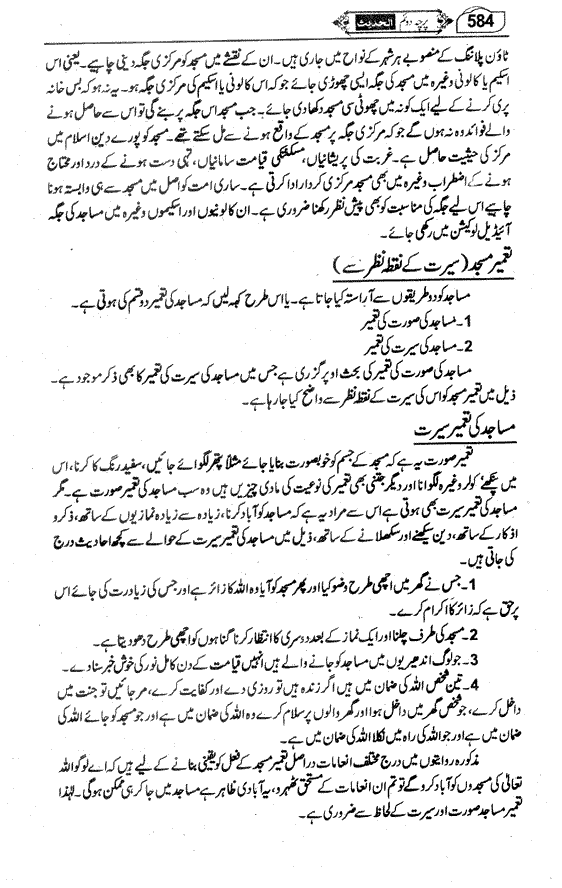 584 الحدیث پرچہ دوئم
ٹاؤن پلاننگ کے منصوبے ہر شہر کے نواح میں جاری ہیں۔ ان کے نقشے میں مسجد کو مرکزی جگہ دینی چاہیے۔ یعنی اس
اسکیم یا کالونی وغیرہ میں مسجد کی جگہ ایسی چھوڑی جائے جو کہ اس کالونی یا اسکیم کی مرکزی جگہ ہو۔ یہ نہ ہو کہ بس خانہ
پری کرنے کے لیے ایک کونہ میں چھوٹی سی مسجد دکھا دی جائے۔ جب مسجد اس جگہ پر بنے گی تو اس سے حاصل ہونے
والے فوائد وہ نہ ہوں گے جو کہ مرکزی جگہ پر مسجد کے واقع ہونے سے مل سکتے تھے۔ مسجد کو پورے دین اسلام میں
مرکز کی حیثیت حاصل ہے۔ غربت کی پریشانیاں، قیامت سامانیاں، تہی دست ہونے کے درد اور محتاج
ہونے کے اضطراب وغیرہ میں بھی مسجد مرکزی کردار ادا کرتی ہے۔ ساری امت کو اصل میں مسجد سے ہی وابستہ ہونا
چاہیے اس لیے جگہ کی مناسبت کو بھی پیش نظر رکھنا ضروری ہے۔ ان کالونیوں اور اسکیموں وغیرہ میں مساجد کی جگہ
آئیڈیل لوکیشن میں رکھی جائے۔
تعمیر مسجد (سیرت کے نقطہ نظر سے)
مساجد کو دو طریقوں سے آراستہ کیا جاتا ہے۔ یا اس طرح کہہ لیں کہ مساجد کی تعمیر دو قسم کی ہوتی ہے۔
1۔ مساجد کی صورت کی تعمیر
2۔ مساجد کی سیرت کی تعمیر
مساجد کی صورت کی تعمیر کی بحث اوپر گزری ہے جس میں مساجد کی سیرت کی تعمیر کا بھی ذکر موجود ہے۔
ذیل میں تعمیر مسجد کو اس کی سیرت کے نقطہ نظر سے واضح کیا جا رہا ہے۔
مساجد کی تعمیر سیرت
تعمیر صورت یہ ہے کہ مسجد کے جسم کو خوبصورت بنایا جائے مثلاً پتھر لگوائے جائیں، سفید رنگ کا کرنا، اس
میں پنکھے، کولر وغیرہ لگوانا اور دیگر جتنی بھی تعمیر کی نوعیت کی مادی چیزیں ہیں وہ سب مساجد کی تعمیر صورت ہے۔ مگر
مساجد کی تعمیر سیرت بھی ہوتی ہے اس سے مراد یہ ہے کہ مساجد کو آباد کرنا، زیادہ سے زیادہ نمازیوں کے ساتھ، ذکر و
اذکار کے ساتھ، دین سیکھنے اور سکھلانے کے ساتھ، ذیل میں مساجد کی تعمیر سیرت کے حوالے سے کچھ احادیث درج
کی جاتی ہیں۔
1۔ جس نے گھر میں اچھی طرح وضو کیا اور پھر مسجد کو آیا وہ اللہ کا زائر ہے اور جس کی زیارت کی جائے اس
پر حق ہے کہ زائر کا اکرام کرے۔
2۔ مسجد کی طرف چلنا اور ایک نماز کے بعد دوسری کا انتظار کرنا گناہوں کو اچھی طرح دھو دیتا ہے۔
3۔ جو لوگ اندھیریوں میں مساجد کو جانے والے ہیں انہیں قیامت کے دن کامل نور کی خوش خبر سنا دے۔
4۔ تین شخص اللہ کی ضمان میں ہیں اگر زندہ ہیں تو روزی دے اور کفایت کرے، مر جائیں تو جنت میں
داخل کرے، جو شخص گھر میں داخل ہوا اور گھر والوں پر سلام کرے وہ اللہ کی ضمان میں ہے اور جو مسجد کو جائے اللہ کی
ضمان میں ہے اور جو اللہ کی راہ میں نکلا اللہ کی ضمان میں ہے۔
مذکورہ روایتوں میں درج مختلف انعامات دراصل تعمیر مسجد کے فعل کو یقینی بنانے کے لیے ہیں کہ اے لوگو اللہ
تعالیٰ کی مسجدوں کو آباد کرو گے تو تم ان انعامات کے مستحق ٹھہرو، یہ آبادی ظاہر ہے مساجد میں جا کر ہی ممکن ہو گی۔ لہٰذا
تعمیر مساجد صورت اور سیرت کے لحاظ سے ضروری ہے۔